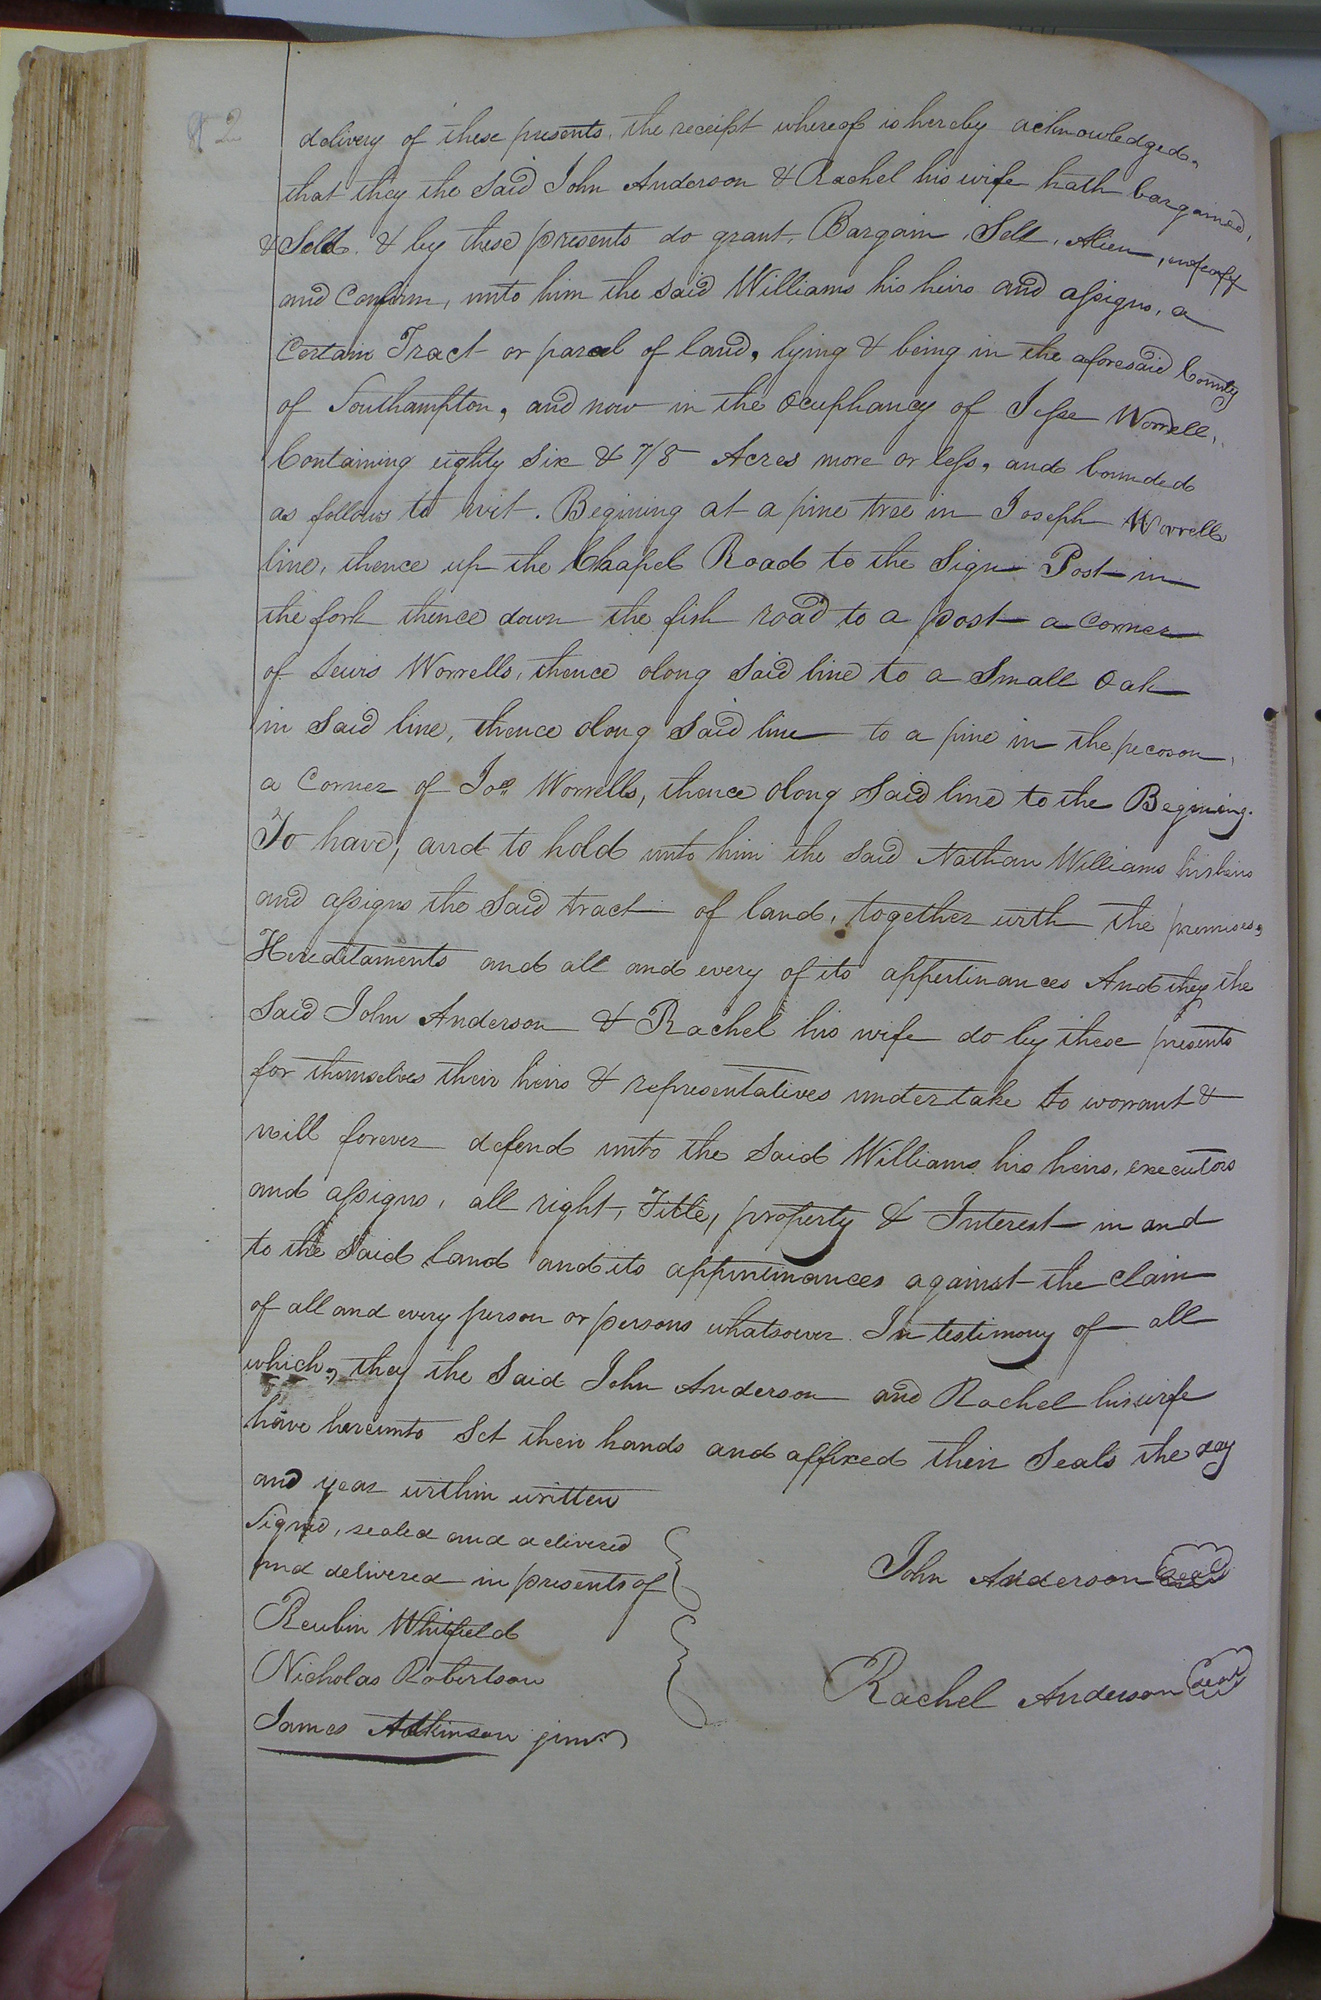 92
delivery of these presents, the receipt whereof is hereby acknowledged,
that they the said John Anderson & Rachel his wife hath bargained,
& Sold. & by these presents do grant, Bargain, Sell, Alien, enfeoff
and Confirm, unto him the said Williams his heirs and assigns, a
Certain Tract or parcel of land, lying & being in the aforesaid County
of Southampton, and now in the Ocuphancy of Jesse Worrell,
Containing eighty six & 7/8 Acres more or less, and bounded
as follows to wit. Begining at a pine tree in Joseph Worrells
line, thence up the Chapel Road to the Sign Post in
the fork thence down the fish road to a post a corner
of Lewis Worrells, thence along said line to a Small Oak
in said line, thence along said line to a pine in the pecoson,
a Corner of Jos. Worrells, thence along said line to the Begining.
To have, and to hold unto him the said Nathan Williams his heirs
and assigns the said tract of land, together with the premises,
Hereditaments and all and every of its appertinances And they the
said John Anderson & Rachel his wife do by these presents
for themselves their heirs & representatives undertake to warrant &
will forever defend unto the said Williams his heirs, executors
and assigns, all right, Title, property & Interest in and
to the said land and its appurtinances against the claim
of all and every person or persons whatsoever. In testimony of all
which, they the said John Anderson and Rachel his wife
have hereunto set their hands and affixed their Seals the day
and year within written
Signed, sealed and adelivered
and delivered in presents of
John Anderson Seal
Reubin Whitfield
Nicholas Robertson
Rachel Anderson Seal
James Adkinson junr.